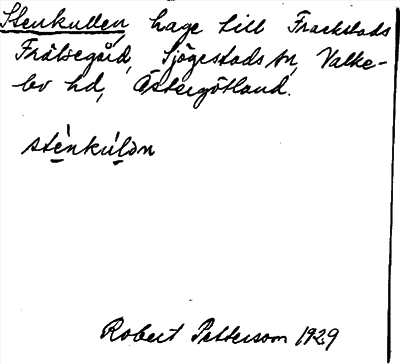 Stenkullen, hage till Frackstads
Frälsegård, Sjögestads sn, Valke-
bo hd, Östergötland.
sténkúlən
Robert Pettersson 1929